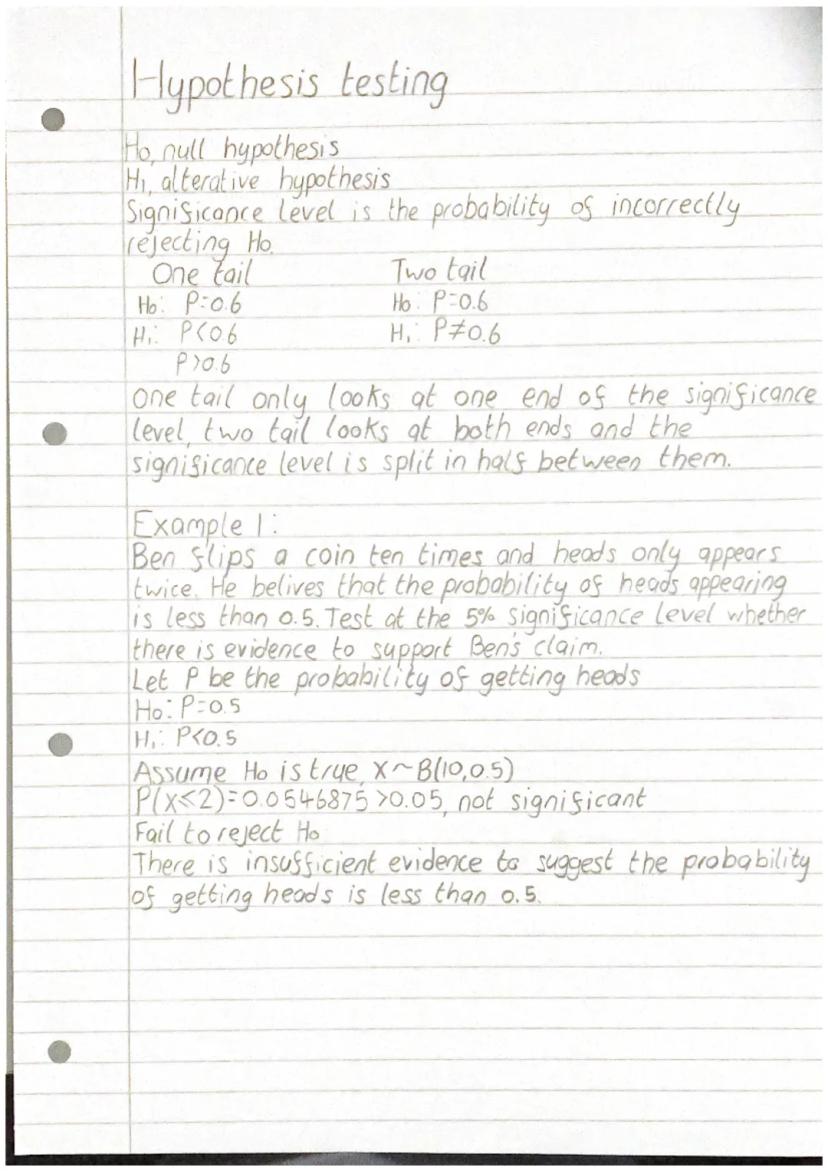 Hypothesis testing
H₀, null hypothesis
H₁, alterative hypothesis
Significance level is the probability of incorrectly
rejecting H₀.
One tail Two tail
H₀: P=0.6 H₀: P=0.6
H₁: P<0.6 H₁: P≠0.6
P>0.6
One tail only looks at one end of the significance
level, two tail looks at both ends and the
significance level is split in half between them.
Example 1:
Ben flips a coin ten times and heads only appears
twice. He belives that the probability of heads appearing
is less than 0.5. Test at the 5% significance level whether
there is evidence to support Ben's claim.
Let P be the probability of getting heads
H₀: P=0.5
H₁: P<0.5
Assume H₀ is true, X~B(10,0.5)
P(X≤2)=0.0546875>0.05, not significant
Fail to reject H₀
There is insufficient evidence to suggest the probability
of getting heads is less than 0.5.